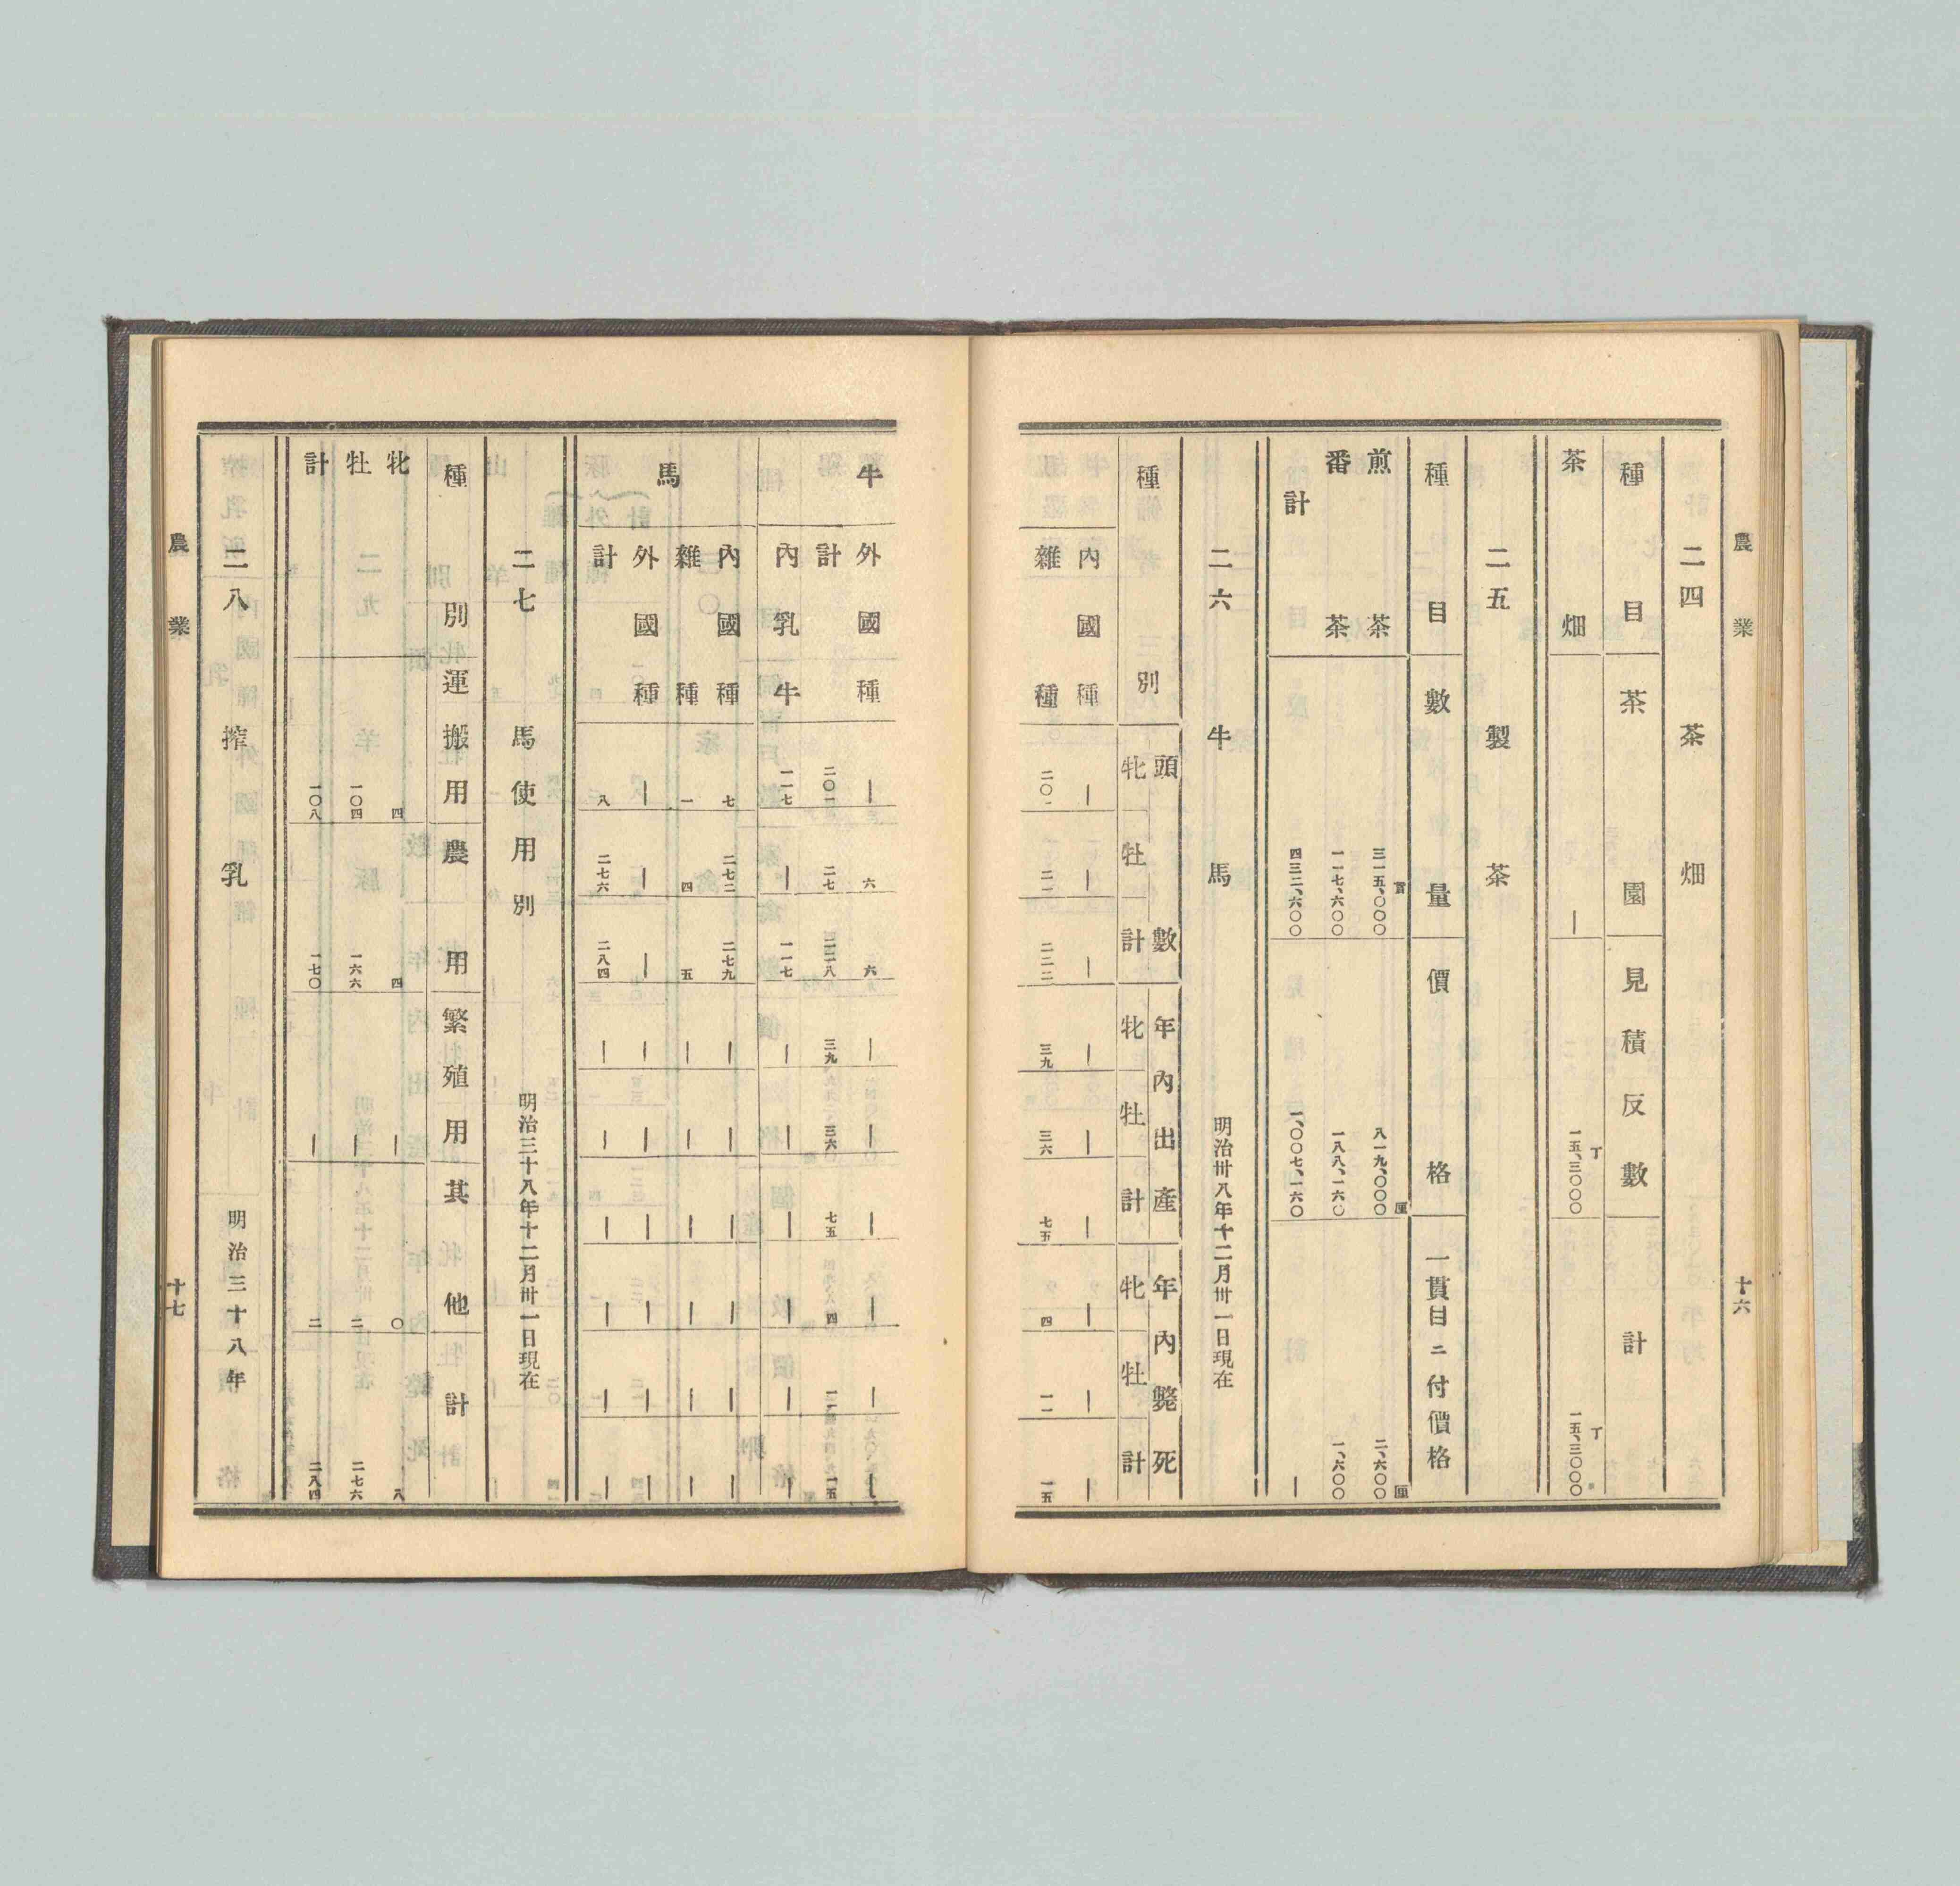 農業
十六
二四 茶畑
種目
茶園
見積反數
計
茶畑
―
丁
一五、三〇〇〇
丁
一五、三〇〇〇
二五 製茶
種目
數量
價格
一貫目ニ付價格
煎茶
貫
三一五、〇〇〇
八一九、〇〇〇
厘
二、六〇〇
厘
番茶
一一七、六〇〇
一八八、一六〇
一、六〇〇
計
四三二、六〇〇
一、〇〇七、一六〇
―
二六 牛馬 明治卅八年十二月卅一日現在
種別
頭數
年內出產
年內斃死
牝 牡 計 牝 牡 計 牝 牡 計
內國種 ― ― ― ― ― ― ― ― ―
雜種 二〇一 二一 二二二 三九 三六 七五 四 一一 一五
農業
十七
牛
外國種 ― 六 六 ― ― ― ― ― ―
計 二〇一 二七 二二八 三九 三六 七五 四 一一 一五
內乳牛 一一七 ― 一一七 ― ― ― ― ― ―
馬
內國種 七 二七二 二七九 ― ― ― ― ― ―
雜種 一 四 五 ― ― ― ― ― ―
外國種 ― ― ― ― ― ― ― ― ―
計 八 二七六 二八四 ― ― ― ― ― ―
二七 馬使用別 明治三十八年十二月卅一日現在
種別 運搬用 農用 繁殖用 其他 計
牝 四 四 ― 〇 八
牡 一〇四 一六六 ― 二 二七六
計 一〇八 一七〇 ― 二 二八四
二八 搾乳 明治三十八年